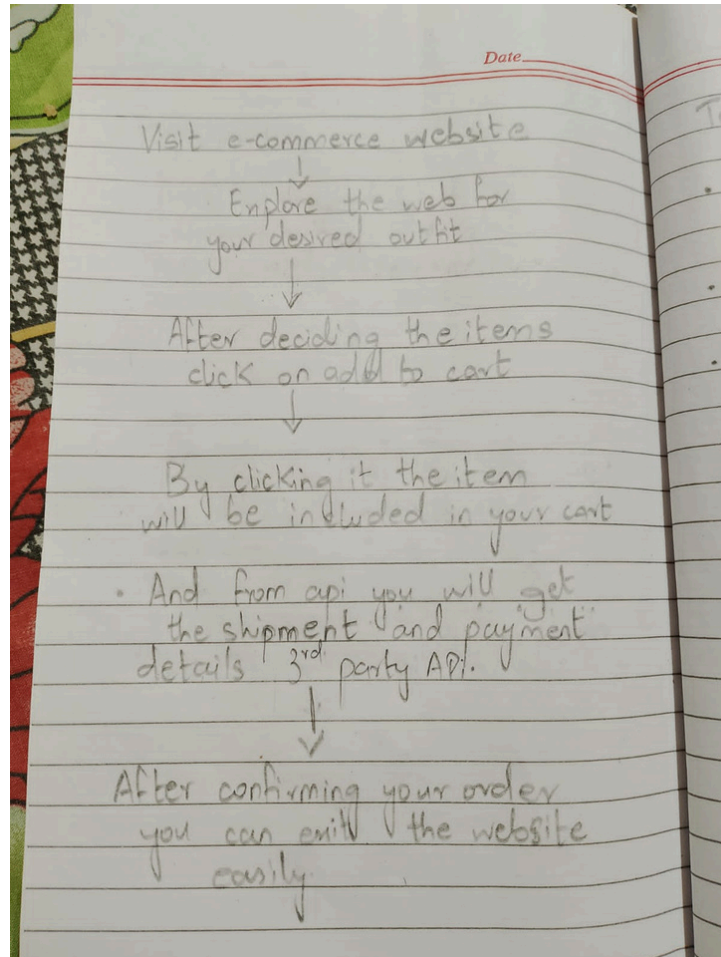 Date
Visit e-commerce website
Explore the web for
your desired outfit
After deciding the items
click on add to cart
By clicking it the item
will be included in your cart
• And from api you will get
the shipment and payment
details 3rd party API.
After confirming your order
you can exit the website
easily